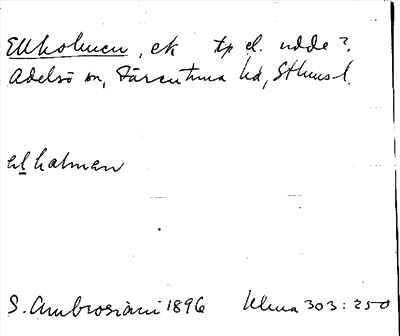 Ekholmen, ek tp el. udde?
Adelsö sn, Färentuna hd, Sthms l.
ekhalman
S. Ambrosiani 1896 Ulma 303:250